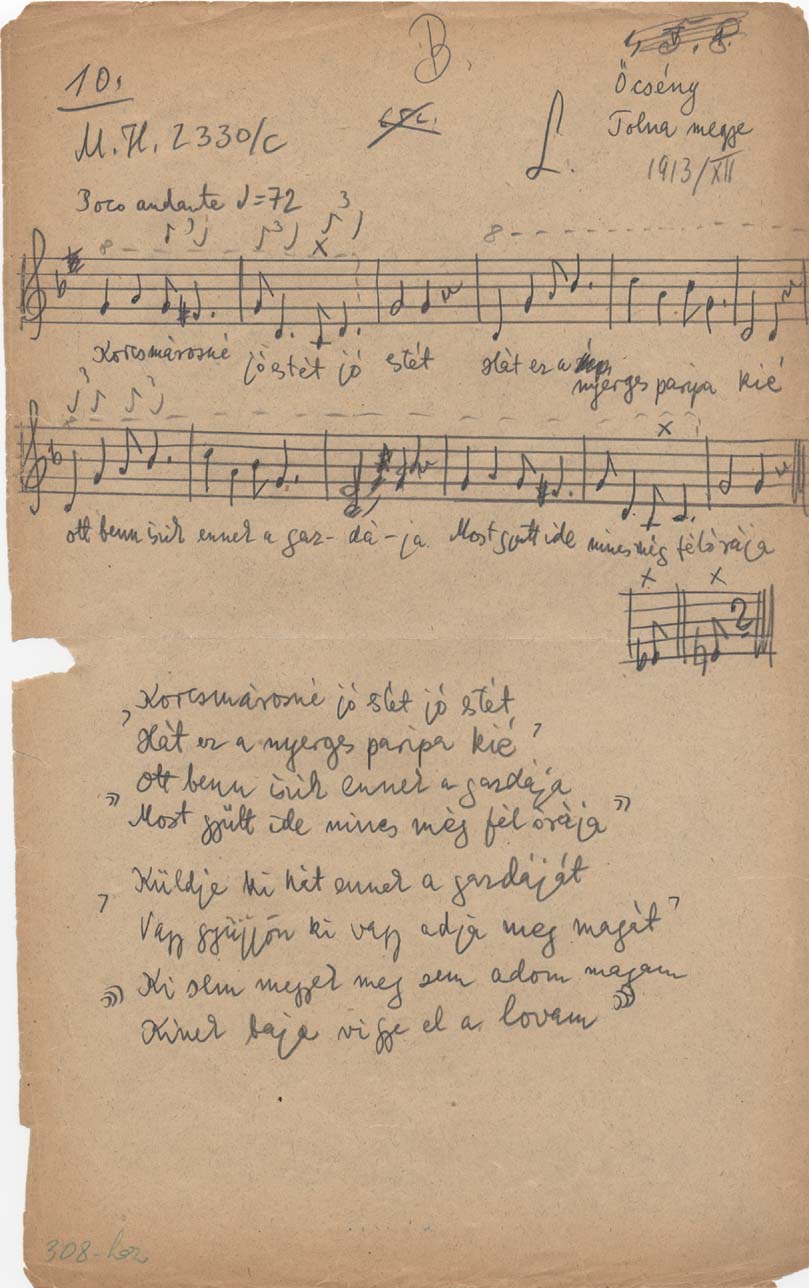 B.
10.
M. H. 2330/c
L.
Őcsény
Tolna megye
1913/XII
Poco andante ♩=72
3 3 3
8
8
Korcsmárosné jó stét jó stét Hát ez a nyerges paripa kié
3 3
ott benn iszik ennek a gaz-dá-ja Most gyütt ide nincs még félórája
Korcsmárosné jó stét jó stét
, Hát ez a nyerges paripa kié ’
Ott benn iszik ennek a gazdája
„ Most gyütt ide nincs még fél órája ”
Küldje ki hát ennek a gazdáját
, Vagy gyüjjön ki vagy adja meg magát ’
Ki sem megyek meg sem adom magam
Kinek baja vigye el a lovam
308-hoz